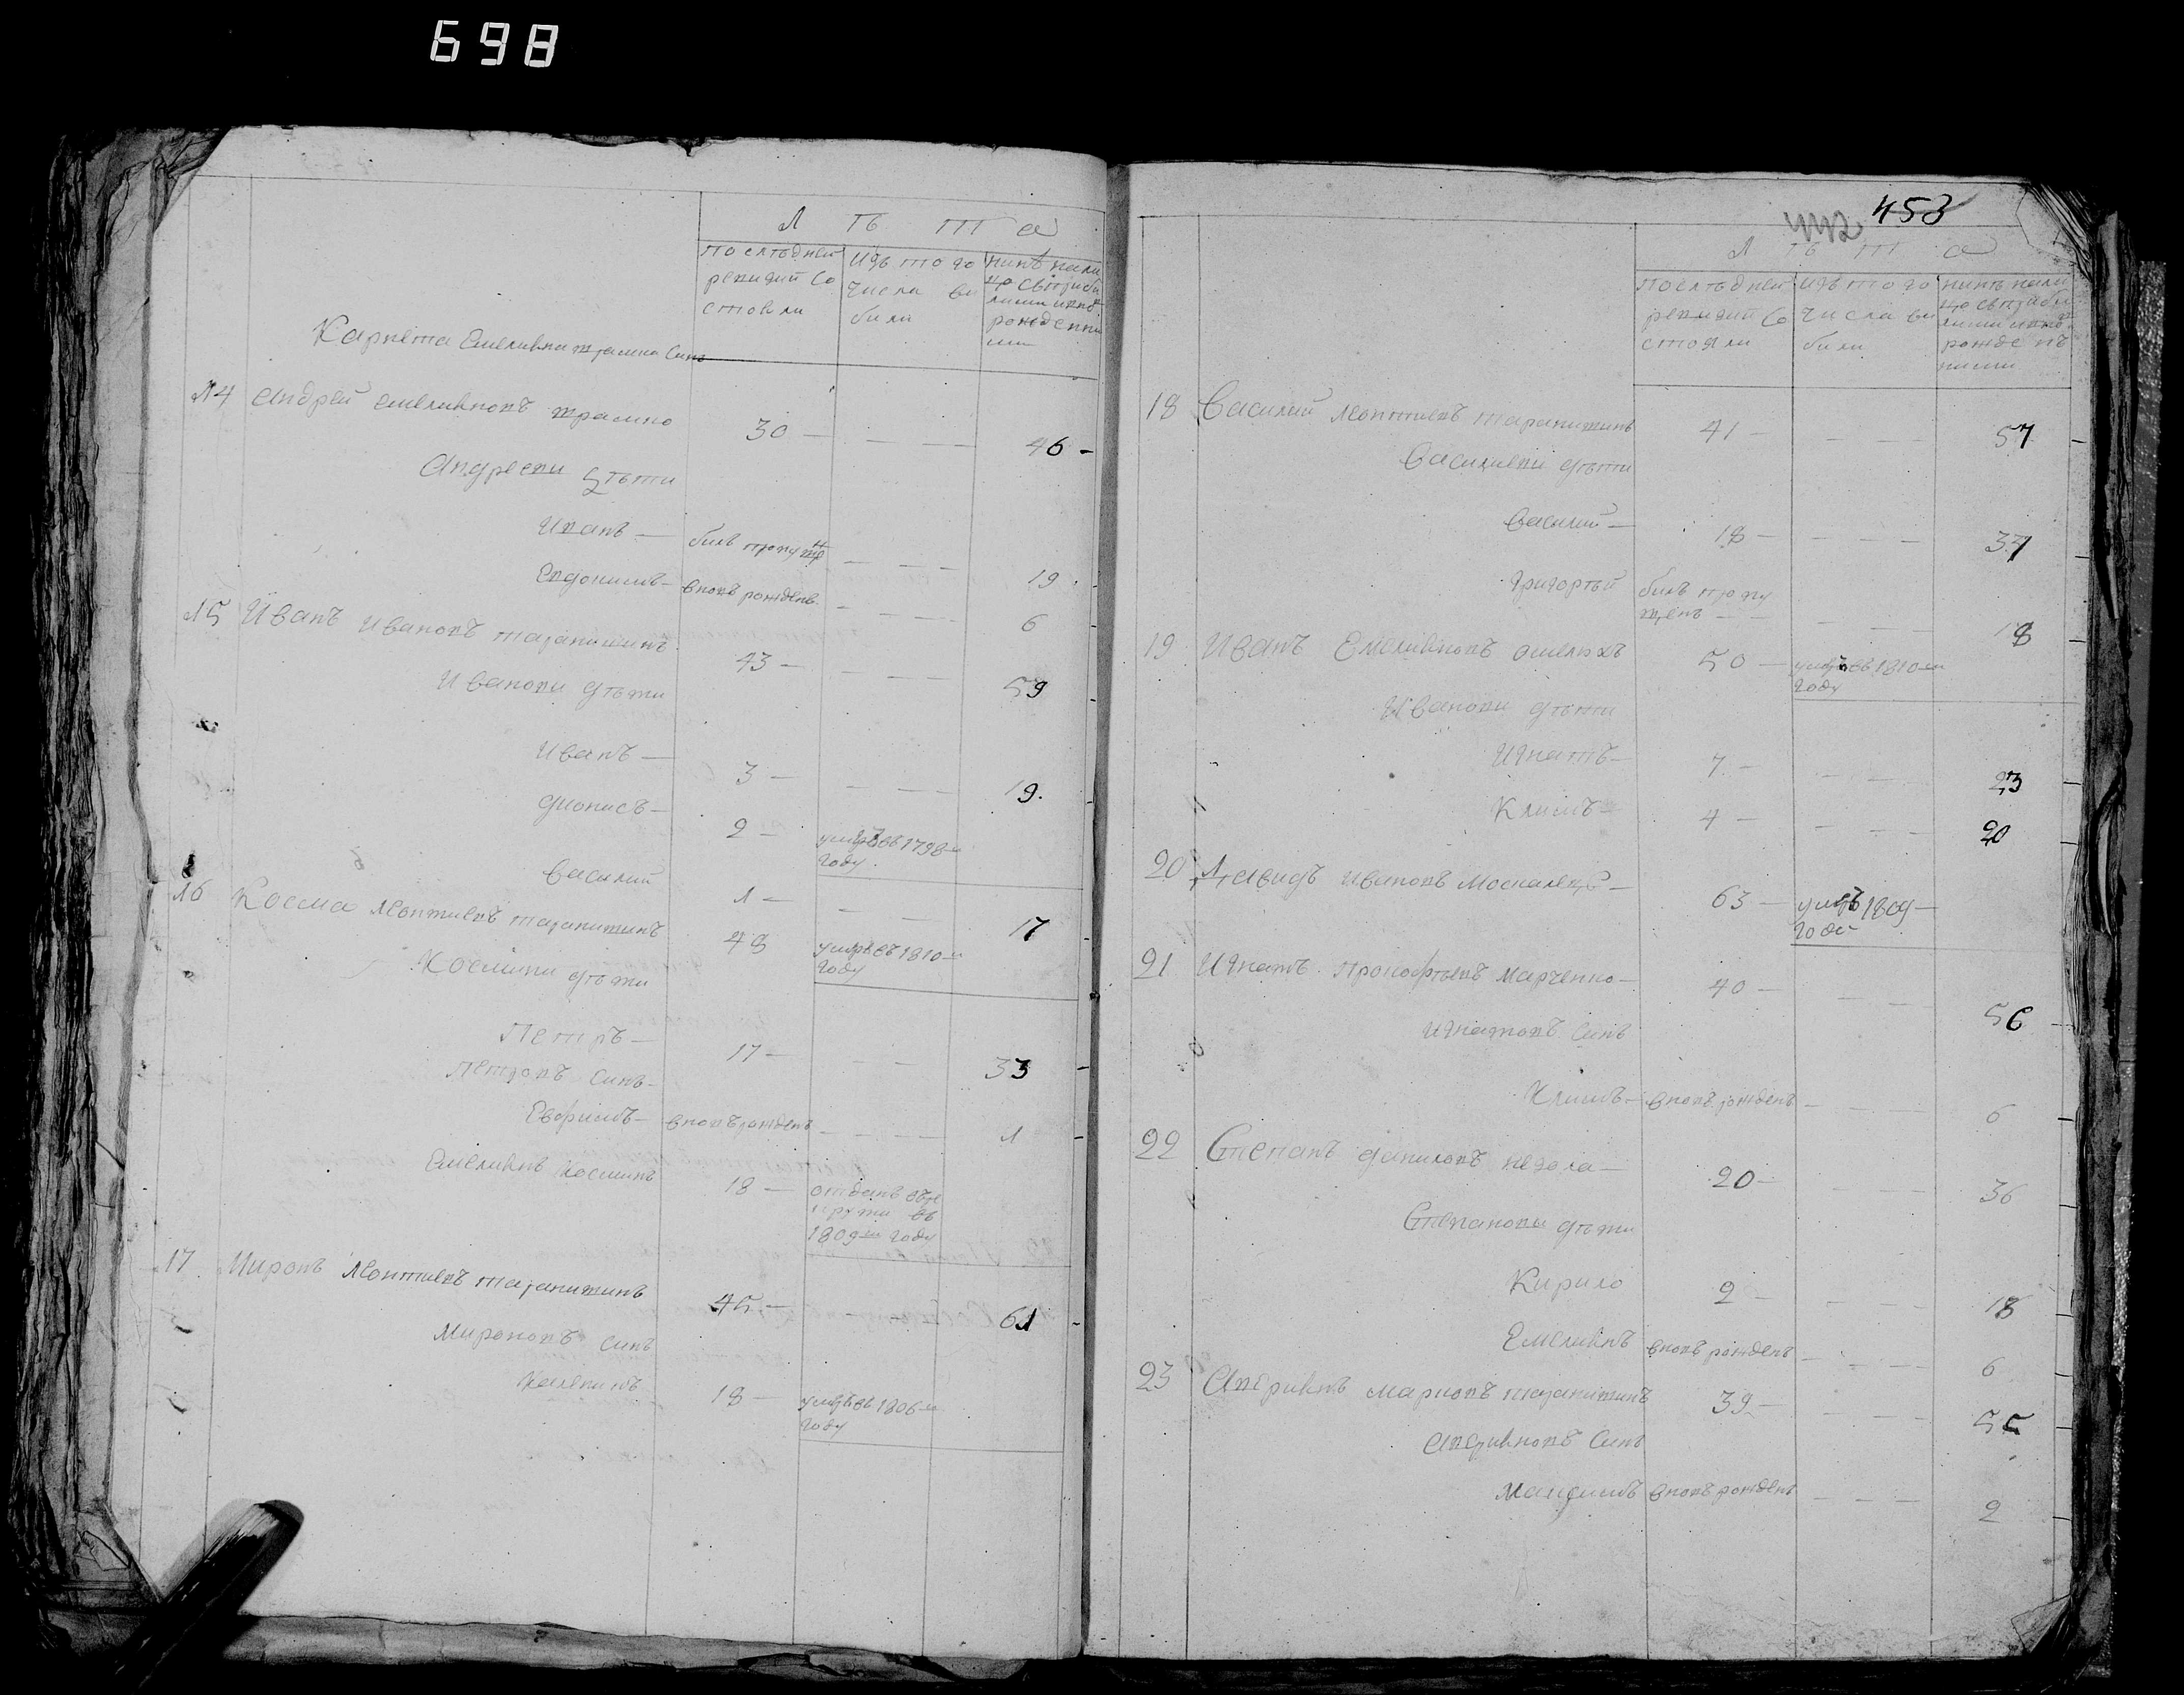 698
Л ѣ т а
По слѣдней ревизіи Со стояли
Изъ того числа вы были
Ныне нали цо съ прибы лыми и рожденны ми
Карпета Емельянна Трамна Сынъ
14 Андрей Емельяновъ Трамно 30 — — — — 46 -
Андреевы Дѣти
Иванъ — былъ пропу — — — 19
Евдокимъ — вновь рожденъ — — — 6
15 Иванъ Ивановъ таранишинъ 43 — — — — 59
Ивановы дѣти
Иванъ — 3 — — — — 19.
дионисъ — 2 — умре въ 1798 м году.
Василий 1 — — — 17
16 Косма Леонтиевъ таранишинъ 48 умре въ 1810 м году
Космины дѣти
Петръ — 17 — — — 33
Петровъ Синъ —
Евфимъ — вновь рожденъ — — — — 1
Емельянъ Косминъ 18 — отданъ въ ре круты въ 1809 м году
17 Миронъ Леонтиевъ таранишинъ 45 — 61
Мироновъ синъ
18 — умре въ 1806 м году
453
Л ѣ т а
После дней ревизій Со стояли
Изъ того числа вы были
Нинѣ нали цо съ прибы лими рожде нъ ними
18 Василий Леонтиевъ таранишинъ 41 — — — — 57
Василиеви дѣти
Василий — 18 — — — — 34
Григорѣй былъ пропу щенъ — — — — 18
19 Иванъ Емельяновъ омелюхъ 50 — умре въ 1810 м году
Ивановы дѣти
Игнатъ — 7 — — — 23
Климъ — 4 — — — — 20
20 Давидъ Ивановъ Москалецъ — 63 — умре 1809 — годо
21 Игнатъ Прокофьевъ Марченко — 40 — — — 56
Игнатовъ Синъ
Климъ — вновь рожденъ — — — — 6
22 Степанъ даниловъ недола — 20 — — — — 36
Степановы дѣти
Кирило 2 — — — — 18
Емельянъ вновь рожденъ — — — — 6
23 Аверкянъ Марковъ таранишинъ 39 — — — — 55
Аверкяновъ Синъ
Максимъ вновь рожденъ — — — — 2